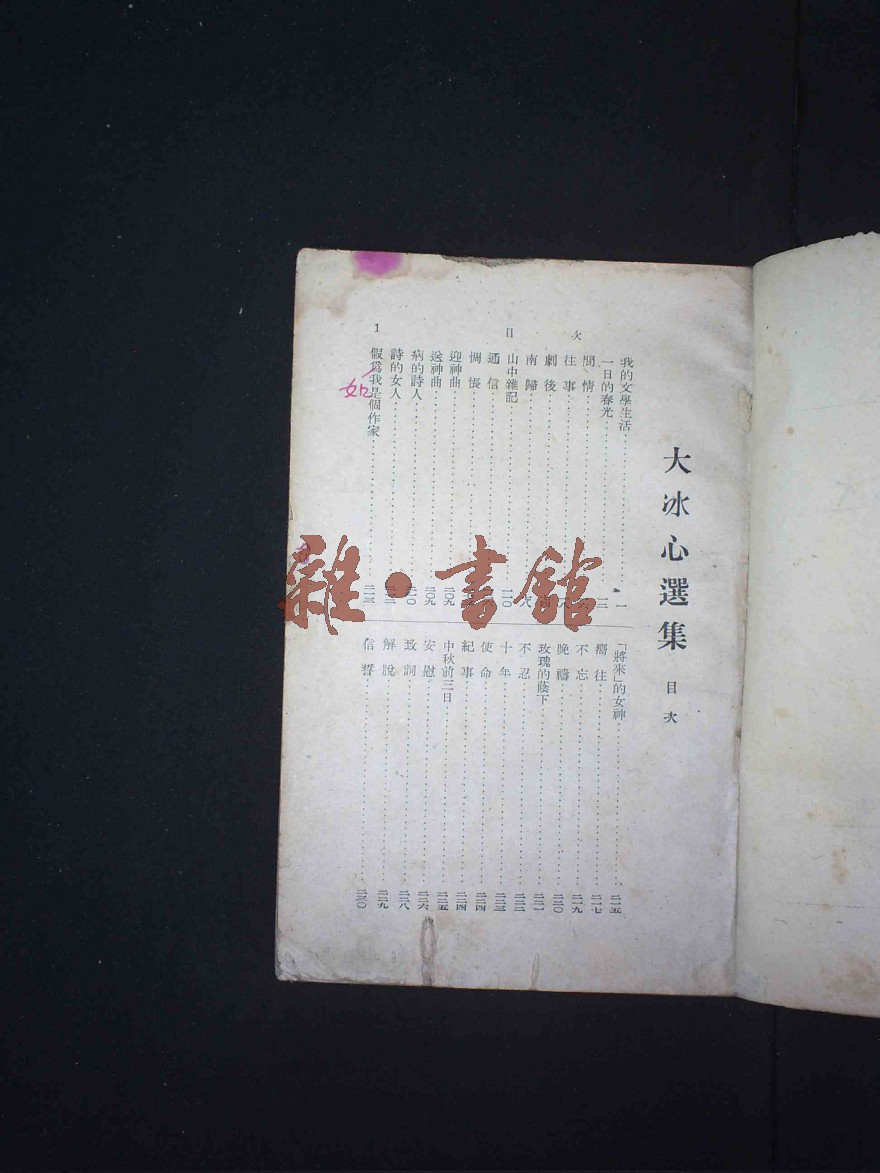 大冰心選集 目次
目次
1
我的文學生活……一
一日的春光……一三
閒情
往事
劇後
南歸
山中雜記
通信
惆悵
迎神曲……二〇九
送神曲……二〇九
病的詩人……二一〇
詩的女人
假為我是個作家……二一三
如
「將來」的女神……二一五
嚮往……二一七
不忘……二一九
晚禱……二二〇
玫瑰的蔭下……二二一
不忍……二二二
十年……二二三
使命……二二四
紀事……二二四
中秋前三日……二二五
安慰……二二六
致詞……二二八
解脫……二二九
信誓……二三〇
雜·書館